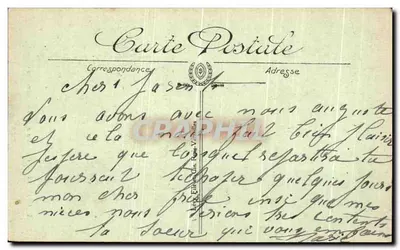 Carte Postale
Correspondance
Adresse
chers
Nous avons avec nous auguste
et cela nous fait bien plaisir
j'espère que lorsquel repartira tu
pourrait quelques jours
mon cher insi que mes
nièces nous serions tres contents
ta soeur que vous embrasse